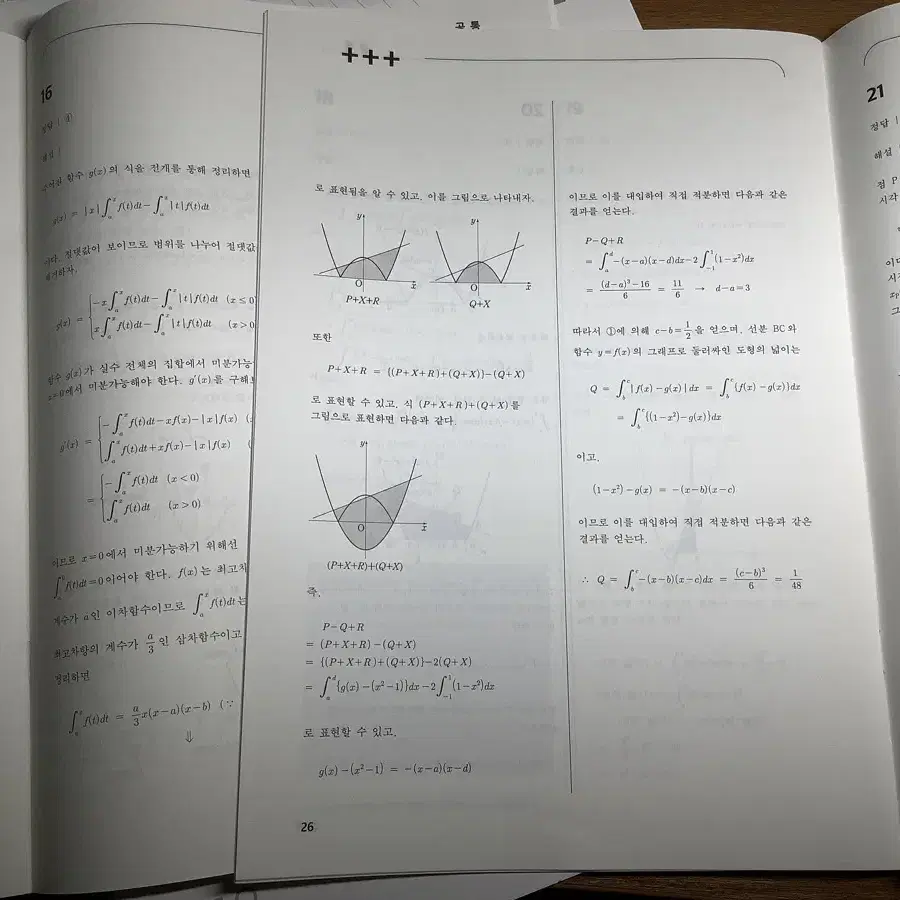 공통
16
정답 | ④
함수 g(x)의 식을 전개를 통해 정리하면
g(x) = |x|∫ₐˣ f(t)dt − ∫ₐˣ |t|f(t)dt
절댓값이 보이므로 범위를 나누어 절댓값
g(x) = { −x∫ₐˣ f(t)dt − ∫ₐˣ |t|f(t)dt (x≤0
x∫ₐˣ f(t)dt − ∫ₐˣ |t|f(t)dt (x>0
함수 g(x)가 실수 전체의 집합에서 미분가능
x=0에서 미분가능해야 한다. g′(x)를 구해
g′(x) = { −∫ₐˣ f(t)dt − xf(x) − |x|f(x)
∫ₐˣ f(t)dt + xf(x) − |x|f(x)
= { −∫ₐˣ f(t)dt (x<0)
∫ₐˣ f(t)dt (x>0)
이므로 x=0에서 미분가능하기 위해선
f(t)dt=0이어야 한다. f(x)는 최고차
계수가 a인 이차함수이므로 ∫ₐˣ f(t)dt는
최고차항의 계수가 a/3인 삼차함수이고
정리하면
∫ₐˣ f(t)dt = a/3 x(x−a)(x−b) (∵
⇓
+++
로 표현됨을 알 수 있고, 이를 그림으로 나타내자.
y
O
x
P+X+R
y
O
x
Q+X
또한
P+X+R = {(P+X+R)+(Q+X)}−(Q+X)
로 표현할 수 있고, 식 (P+X+R)+(Q+X)를
그림으로 표현하면 다음과 같다.
y
O
x
(P+X+R)+(Q+X)
즉,
P−Q+R
= (P+X+R)−(Q+X)
= {(P+X+R)+(Q+X)}−2(Q+X)
= ∫ₐᵈ {g(x)−(x²−1)}dx − 2∫₋₁¹ (1−x²)dx
로 표현할 수 있고,
g(x)−(x²−1) = −(x−a)(x−d)
26
이므로 이를 대입하여 직접 적분하면 다음과 같은
결과를 얻는다.
P−Q+R
= ∫ₐᵈ −(x−a)(x−d)dx − 2∫₋₁¹ (1−x²)dx
= ((d−a)³−16)/6 = 11/6 → d−a=3
따라서 ①에 의해 c−b=1/2을 얻으며, 선분 BC와
함수 y=f(x)의 그래프로 둘러싸인 도형의 넓이는
Q = ∫_b^c |f(x)−g(x)|dx = ∫_b^c {f(x)−g(x)}dx
= ∫_b^c {(1−x²)−g(x)}dx
이고,
(1−x²)−g(x) = −(x−b)(x−c)
이므로 이를 대입하여 직접 적분하면 다음과 같은
결과를 얻는다.
∴ Q = ∫_b^c −(x−b)(x−c)dx = (c−b)³/6 = 1/48
21
정답 |
해설
점 P
시각